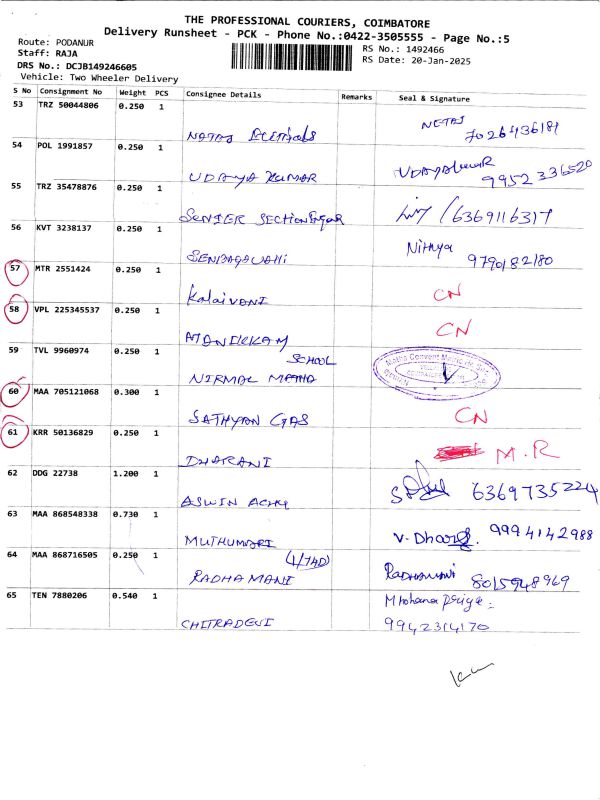 THE PROFESSIONAL COURIERS, COIMBATORE
Delivery Runsheet - PCK - Phone No.:0422-3505555 - Page No.:5
Route: PODANUR
Staff: RAJA
DRS No.: DCJB149246605
Vehicle: Two Wheeler Delivery
RS No.: 1492466
RS Date: 20-Jan-2025
S No Consignment No Weight PCS Consignee Details Remarks Seal & Signature
53 TRZ 50044806 0.250 1 NETAJ
NATAJ 7026436181
54 POL 1991857 0.250 1
UDAYA KUMAR UDAYAKUMAR 9952336520
55 TRZ 35478876 0.250 1
SENIER SECTION 6369116317
56 KVT 3238137 0.250 1 Nithya
SENBAGAVALLI 9790182180
57 MTR 2551424 0.250 1
Kalaivani CN
58 VPL 225345537 0.250 1 CN
MANIKKAM
59 TVL 9960974 0.250 1 SCHOOL
NIRMAL MATHA
60 MAA 705121068 0.300 1
SATHYAN GAS CN
61 KRR 50136829 0.250 1 M.R
DHARANI
62 DDG 22738 1.200 1
ASWIN 6369735224
63 MAA 868548338 0.730 1
MUTHUMARI V. Dharg. 9994142988
64 MAA 868716505 0.250 1 (1/74D)
RADHAMANI Radhamani 8015948969
65 TEN 7880206 0.540 1 Mohana priya
CHITRADEVI 9942314170